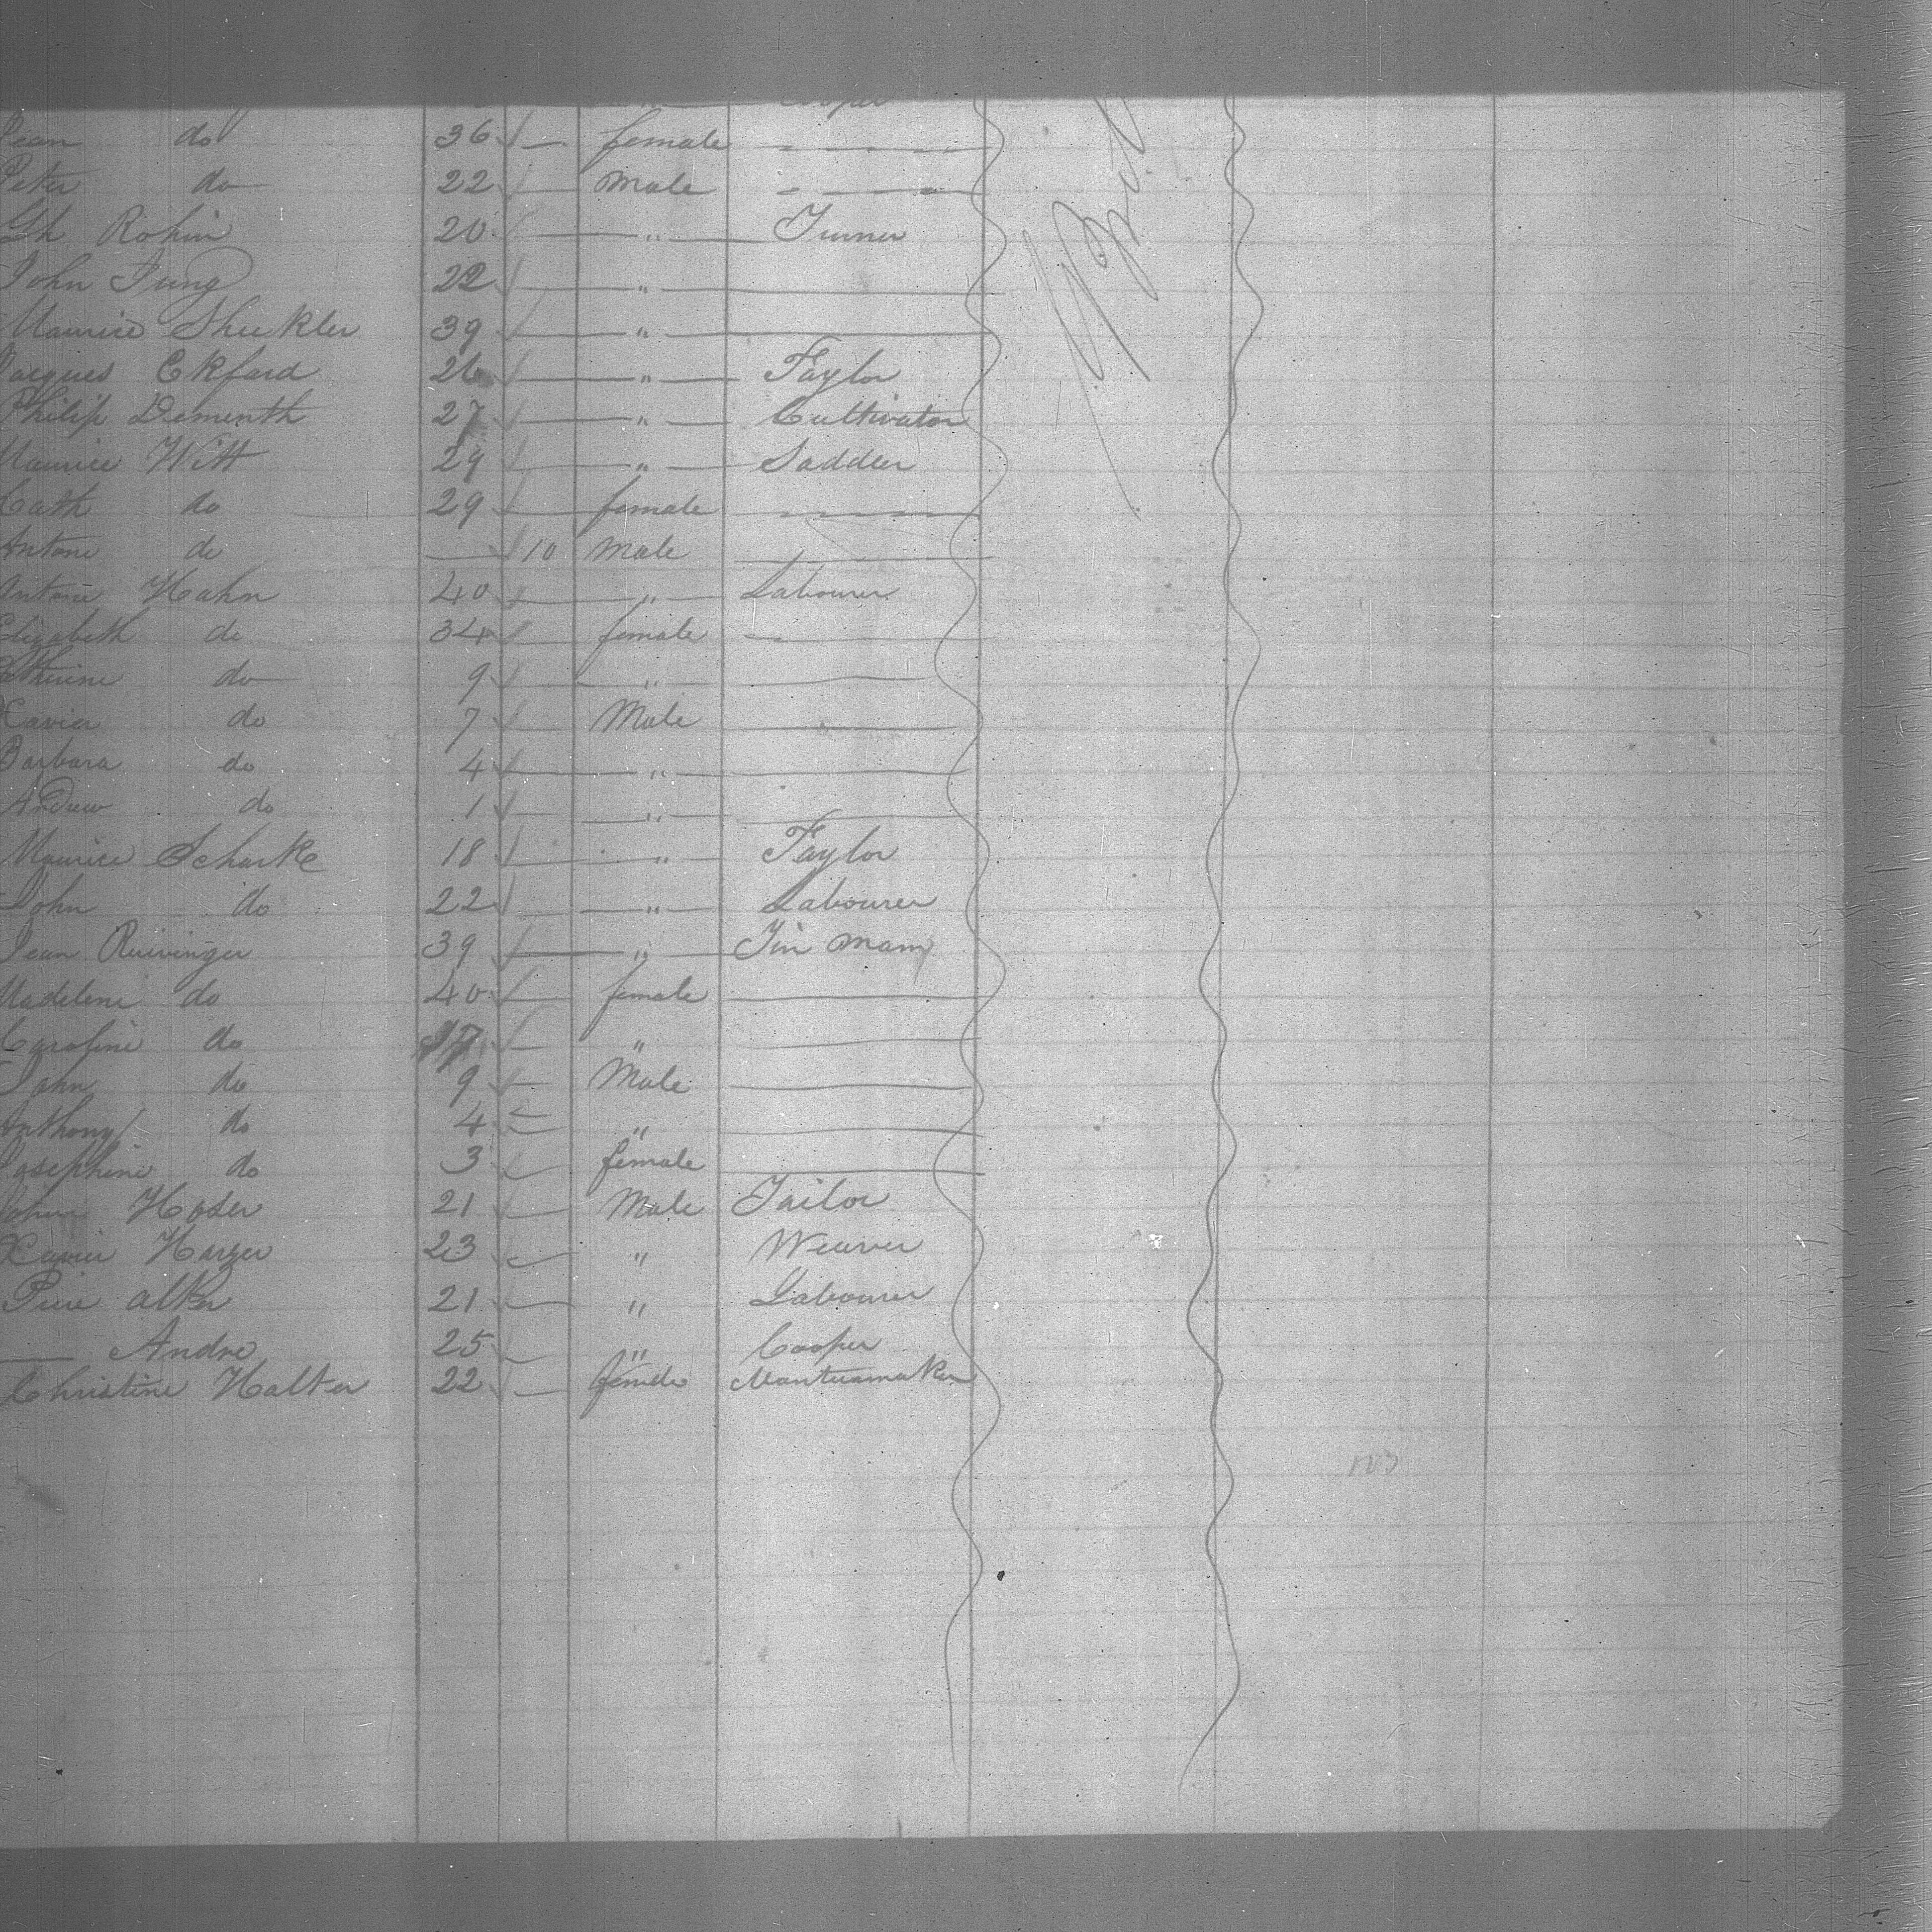 Jean do 36 — female
Peter do 22 — Male
Rohin 20 — " — Turner
John Jung 22 — " —
Maurice Shukler 39 — " —
Jacques Ekfard 26 — " — Taylor
Philip Dementh 27 — " — Cultivator
Maurice Witt 29 — " — Saddler
Cath do 29 — female
Antoni do — 10 Male
Antoni Hahn 40 — " — Labourer
Elizabeth do 34 female —
do 9 — " —
Xavier do 7 Male —
Barbara do 4 — " —
Andrew do 1 — " —
Maurice Scharke 18 — " — Taylor
John do 22 — " — Labourer
Jean Ruivinger 39 — " — Tin Mann
Madeleni do 40 — female —
Carolini do 17 — " —
John do 9 — Male —
Anthony do 4 — " —
Josephine do 3 — female —
Hoser 21 — Male Tailor
Xavier Harger 23 — " Weaver
alker 21 — " Labourer
— Andre 25 — " Cooper
Christine Halter 22 — female Mantuamaker